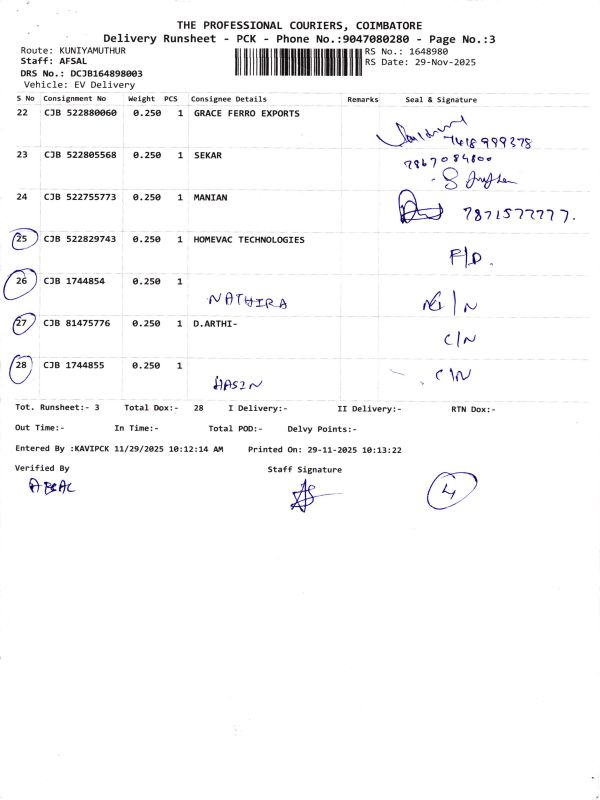 THE PROFESSIONAL COURIERS, COIMBATORE
Delivery Runsheet - PCK - Phone No.:9047080280 - Page No.:3
Route: KUNIYAMUTHUR RS No.: 1648980
Staff: AFSAL RS Date: 29-Nov-2025
DRS No.: DCJB164898003
Vehicle: EV Delivery
S No Consignment No Weight PCS Consignee Details Remarks Seal & Signature
22 CJB 522880060 0.250 1 GRACE FERRO EXPORTS
7418999378
23 CJB 522805568 0.250 1 SEKAR 7867084800
24 CJB 522755773 0.250 1 MANIAN
7871577777.
25 CJB 522829743 0.250 1 HOMEVAC TECHNOLOGIES
F/D.
26 CJB 1744854 0.250 1
NATHIRA N/N
27 CJB 81475776 0.250 1 D.ARTHI-
C/N
28 CJB 1744855 0.250 1
HASIN C/N
Tot. Runsheet:- 3 Total Dox:- 28 I Delivery:- II Delivery:- RTN Dox:-
Out Time:- In Time:- Total POD:- Delvy Points:-
Entered By :KAVIPCK 11/29/2025 10:12:14 AM Printed On: 29-11-2025 10:13:22
Verified By Staff Signature
4